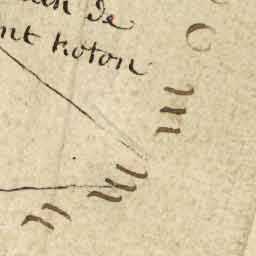 de
nt koton